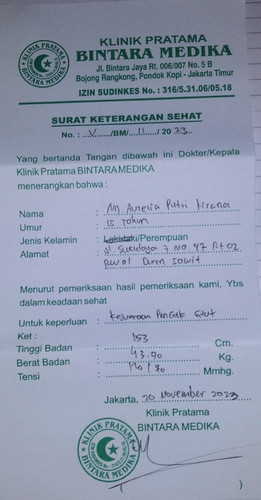 KLINIK PRATAMA
BINTARA MEDIKA
Jl. Bintara Jaya Rt. 006/007 No. 5 B
Bojong Rangkong, Pondok Kopi - Jakarta Timur
IZIN SUDINKES No. : 316/5.31.06/05.18
SURAT KETERANGAN SEHAT
No. : V /BM/ 11 / 2023
Yang bertanda Tangan dibawah ini Dokter/Kepala
Klinik Pratama BINTARA MEDIKA
menerangkan bahwa :
Nama : Nn Aurelia Putri Kirana
Umur : 15 Tahun
Jenis Kelamin : Lakilaki/Perempuan
Alamat : Jl Surabaya 7 No 47 Rt 02
Duren Sawit
Menurut pemeriksaan hasil pemeriksaan kami, Ybs
dalam keadaan sehat
Untuk keperluan : Kejuaraan Pencak Silat
Ket :
Tinggi Badan : 153 Cm.
Berat Badan : 43.90 Kg.
Tensi : 110/80 Mmhg.
Jakarta, 20 November 2023
Klinik Pratama
BINTARA MEDIKA
KLINIK PRATAMA
BINTARA MEDIKA